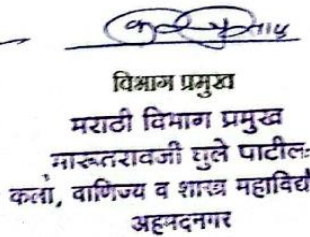 विभाग प्रमुख
मराठी विभाग प्रमुख
मारूतरावजी घुले पाटील
कला, वाणिज्य व शास्त्र महाविद्य
अहमदनगर